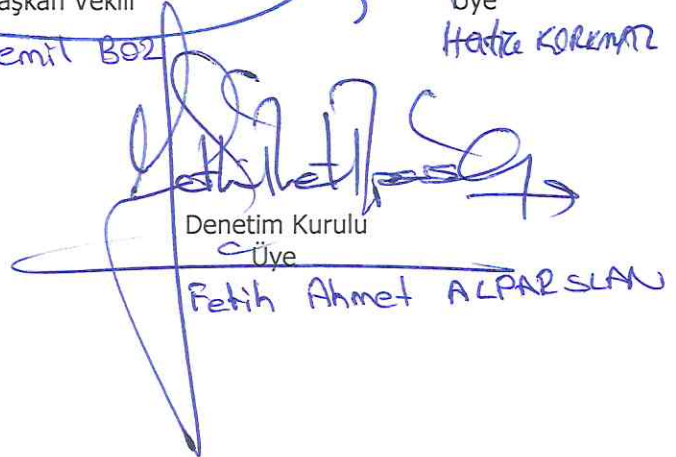 aşkan Vekili Üye
emil BOZ Hatice KORKMAZ
Denetim Kurulu
Üye
Fetih Ahmet ALPARSLAN